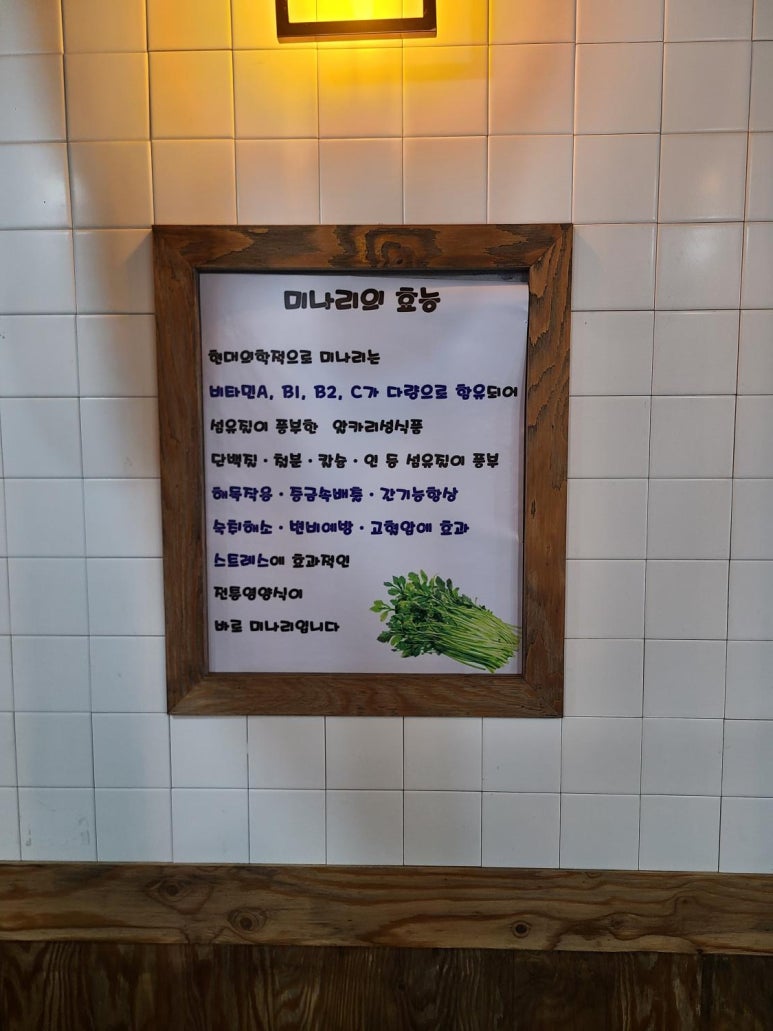 미나리의 효능
현대의학적으로 미나리는
비타민A, B1, B2, C가 다량으로 함유되어
섬유질이 풍부한 알카리성식품
단백질 · 철분 · 칼슘 · 인 등 섬유질이 풍부
해독작용 · 중금속배출 · 간기능향상
숙취해소 · 변비예방 · 고혈압에 효과
스트레스에 효과적인
전통영양식이
바로 미나리입니다